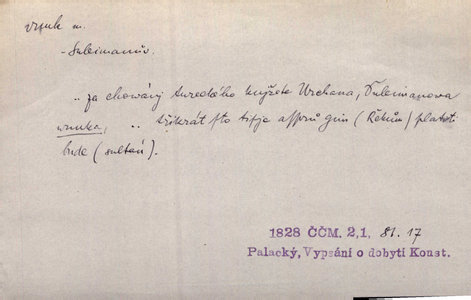 vnuk m.
- Suleimanův.
.. za chowání tureckého knjžete Urchana, Suleimanowa
wnuka, .. třikrát sto tisjc asprů gim (Řekům) platiti
bude (sultán).
1828 ČČM. 2,1, 81. 17
Palacký, Vypsání o dobytí Konst.